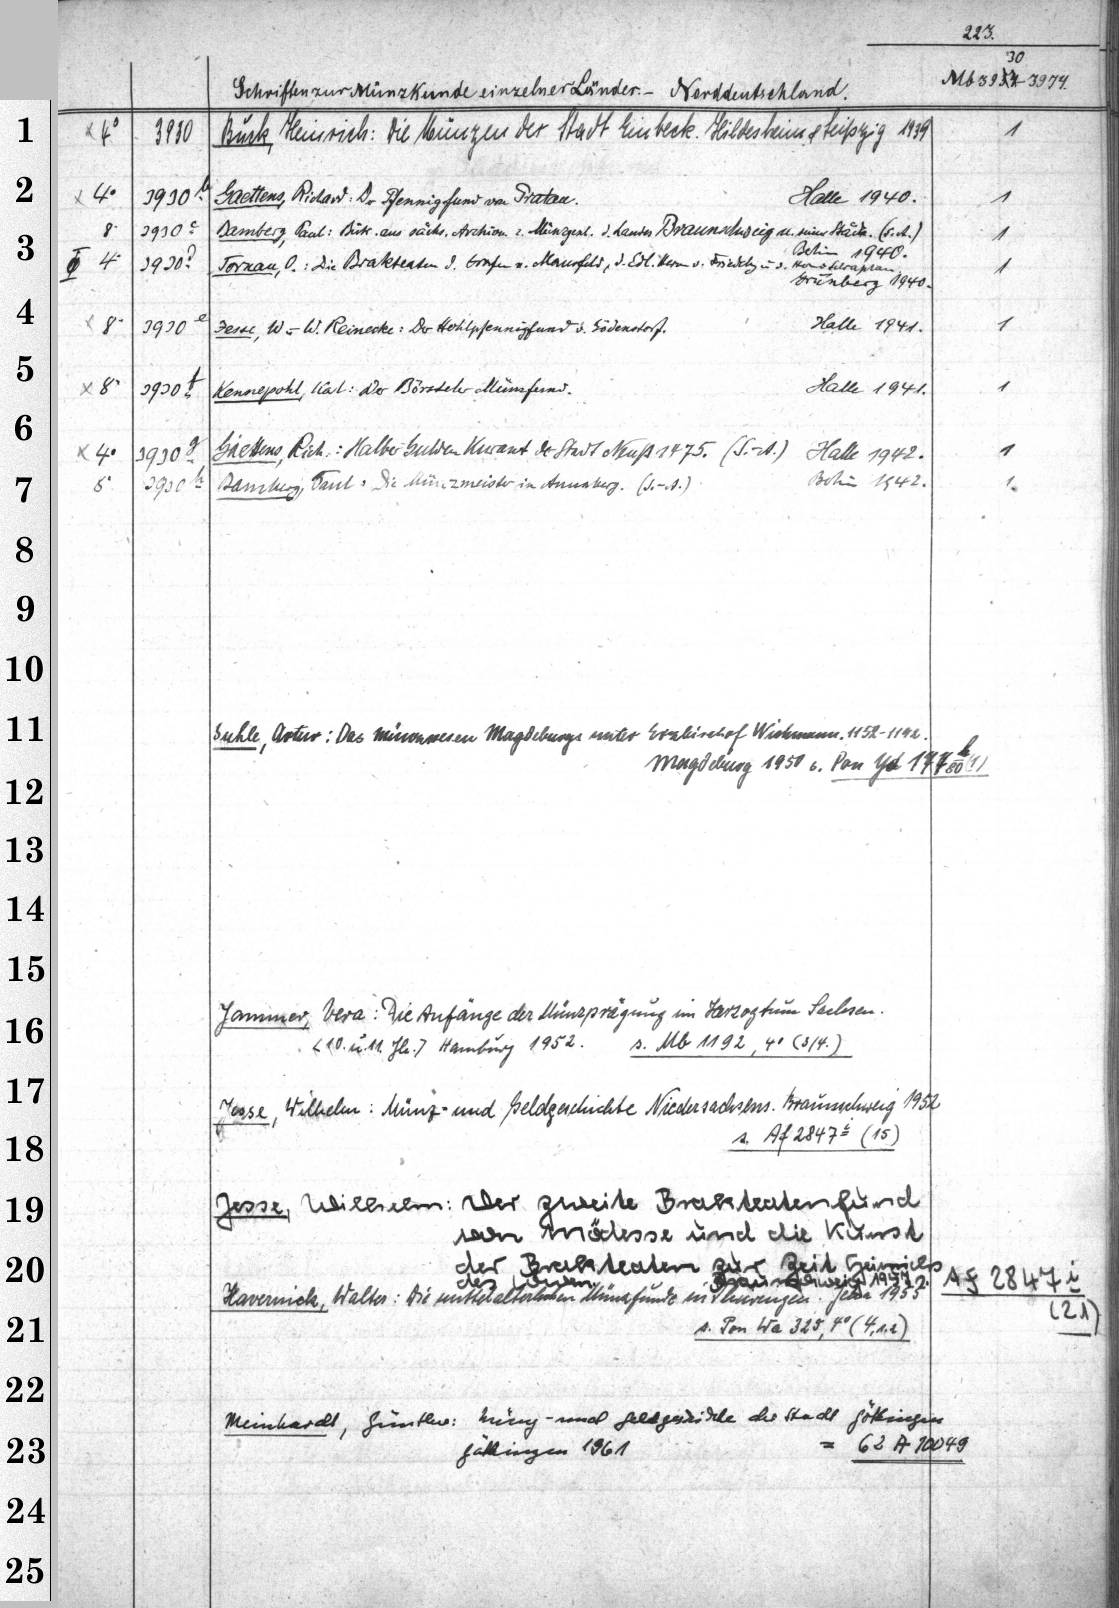 223.
30
Schriften zur Münzkunde einzelner Länder. - Norddeutschland. Mb 3974.
1 x 4° 3930 Buck, Heinrich: Die Münzen der Stadt Einbeck. Hildesheim & Leipzig 1939 1
2 x 4° 3930 b Gaettens, Richard: Der Pfennigfund von Pratau. Halle 1940. 1
8° 3930 c Bamberg, Paul: Beitr. aus sächs. Archiven z. Münzgesch. d. Landes Braunschweig u. seiner Städte. (S.-A.) 1
Berlin 1940.
3 4° 3930 d Tornau, O.: Die Brakteaten d. Grafen v. Mansfeld, d. Edl. Herrn v. Friedeburg u. d. 1
Grünberg 1940.
4 x 8° 3930 e Jesse, W. - W. Reinecke: Der Hohlpfennigfund v. Südenstorf. Halle 1941. 1
5 x 8° 3930 f Kennepohl, Karl: Der Börsteler Münzfund. Halle 1941. 1
6 x 4° 3930 g Gaettens, Rich.: Halber Gulden Kurant der Stadt Neuß 1475. (S.-A.) Halle 1942. 1
7 8° 3930 h Bamberg, Paul: Die Münzmeister in Annaberg. (S.-A.) Berlin 1942. 1
8
9
10
11 Suhle, Artur: Das Münzwesen Magdeburgs unter Erzbischof Wichmann. 1152-1192.
Magdeburg 1950 s. Pon Yd 177
12
13
14
15
16 Jammer, Vera: Die Anfänge der Münzprägung im Herzogtum Sachsen.
<10. u. 11. Jh.> Hamburg 1952. s. Mb 1192, 4° (3/4.)
17 Jesse, Wilhelm: Münz- und Geldgeschichte Niedersachsens. Braunschweig 1952
18 s. Af 2847 i (15)
19 Jesse, Wilhelm: Der zweite Brakteatenfund
von Mödesse und die Kunst
20 der Brakteaten zur Zeit Heinrichs
des Löwen Braunschweig 1957. Af 2847 i
(21)
Havernick, Walter: Die mittelalterlichen Münzfunde in Thüringen. Jena 1955
21 s. Pon Wa 325, 4° (4, 1.2)
22 Meinhardt, Günther: Münz- und Geldgeschichte der Stadt Göttingen
23 Göttingen 1961 = 62 A 10049
24
25